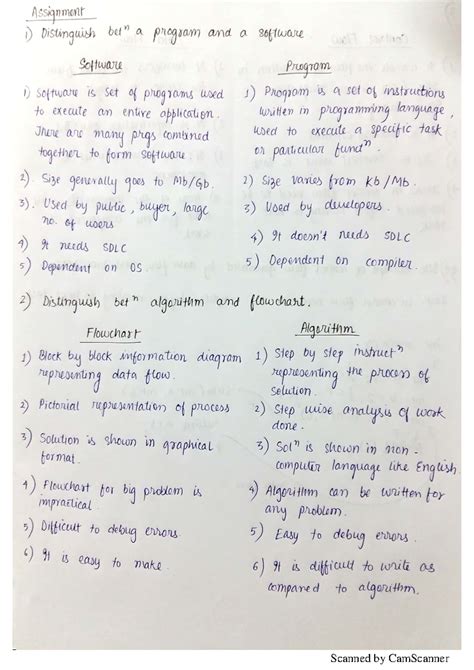 Assignment
1) Distinguish betⁿ a program and a software.
Software
1) Software is set of programs used
to execute an entire application.
There are many prgs combined
together to form software
2) Size generally goes to Mb/Gb.
3) Used by public, buyer, large
no. of users
4) It needs SDLC
5) Dependent on OS
Program
1) Program is a set of instructions
written in programming language,
used to execute a specific task
or particular functⁿ.
2) Size varies from Kb/Mb.
3) Used by developers.
4) It doesn't needs SDLC
5) Dependent on compiler.
2) Distinguish betⁿ algorithm and flowchart.
Flowchart
1) Block by block information diagram
representing data flow.
2) Pictorial representation of process
3) Solution is shown in graphical
format.
4) Flowchart for big problem is
impractical.
5) Difficult to debug errors.
6) It is easy to make.
Algorithm
1) Step by step instructⁿ
representing the process of
solution.
2) Step wise analysis of work
done.
3) Solⁿ is shown in non-
computer language like English.
4) Algorithm can be written for
any problem.
5) Easy to debug errors.
6) It is difficult to write as
compared to algorithm.
Scanned by CamScanner